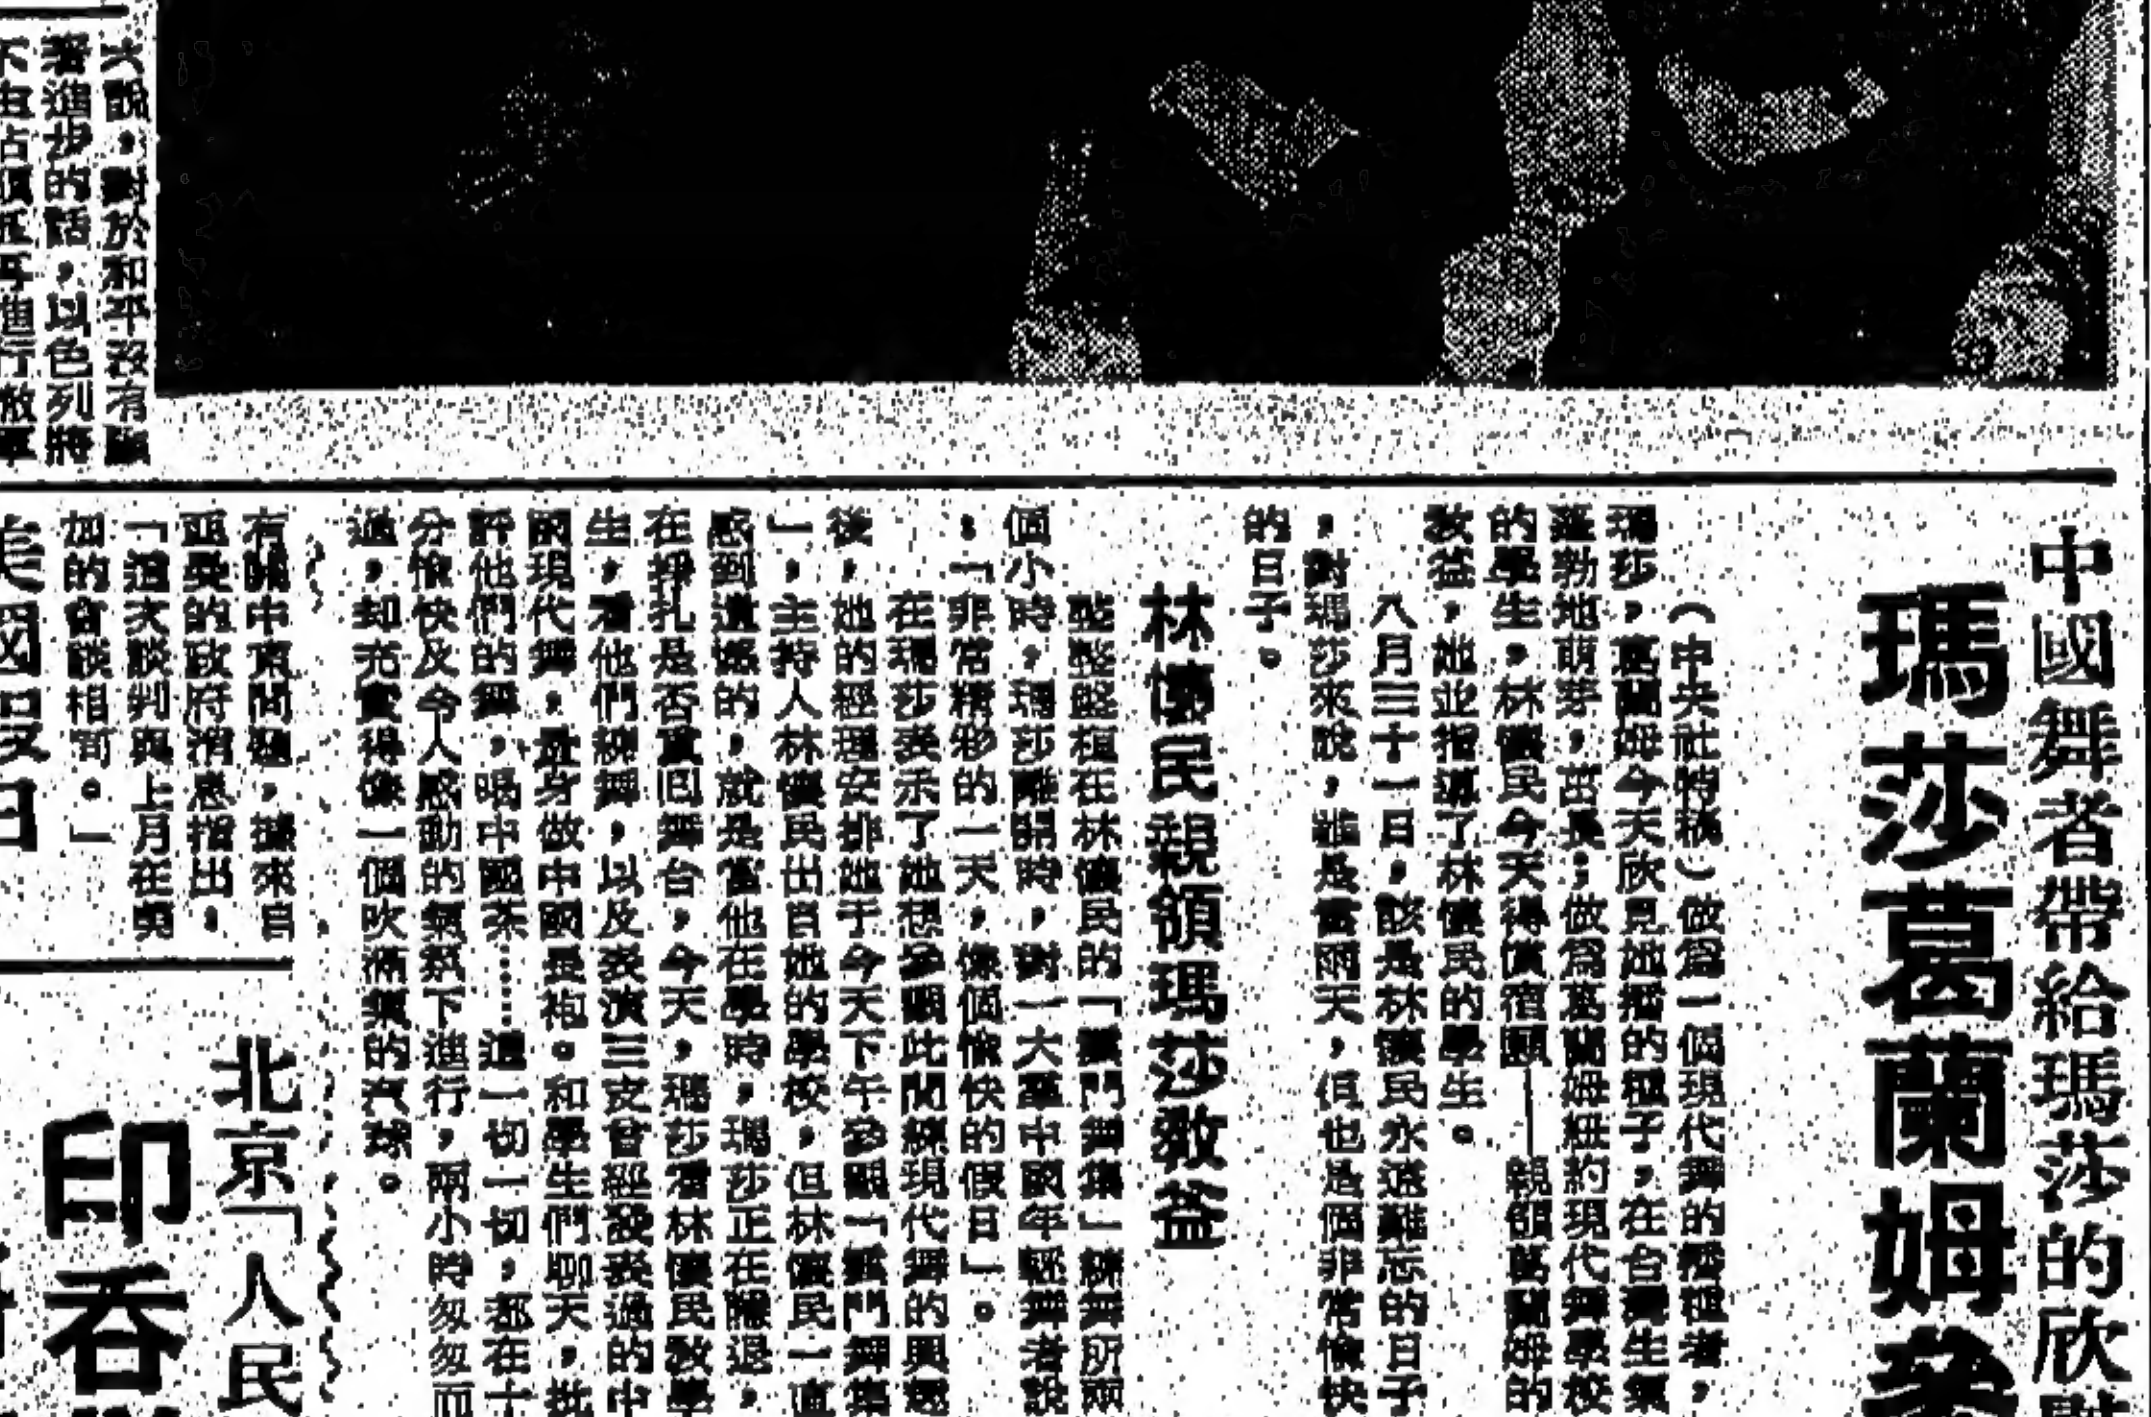 中國舞者帶給瑪莎的欣
瑪莎葛蘭姆參
(中央社特稿)做為一個現代舞的播種者,
瑪莎,葛蘭姆今天欣見她播的種子,在台灣生氣
蓬勃地萌芽,茁長;做為葛蘭姆紐約現代舞學校
的學生,林懷民今天得償宿願——親領葛蘭姆的
教益,她並指導了林懷民的學生。
八月三十一日,該是林懷民永遠難忘的日子
,對瑪莎來說,雖是雷雨天,但也是個非常愉快
的日子。
林懷民親領瑪莎教益
整整盤桓在林懷民的「雲門舞集」練舞所兩
個小時,瑪莎離開時,對一大羣中國年輕舞者說
:「非常精彩的一天,像個愉快的假日」。
在瑪莎表示了她想參觀此間練現代舞的興趣
後,她的經理安排她于今天下午參觀「雲門舞集
」,主持人林懷民出自她的學校,但林懷民一直
感到遺憾的,就是當他在學時,瑪莎正在隱退,
在掙扎是否重回舞台,今天,瑪莎看林懷民教學
生,看他們練舞,以及表演三支曾經發表過的中
國現代舞,量身做中國長袍。和學生們聊天,批
評他們的舞,喝中國茶……這一切一切,都在十
分愉快及令人感動的氣氛下進行,兩小時匆匆而
過,却充實得像一個吹滿氣的汽球。
六說,對於和平沒有
著進步的話,以色列將
有關中東問題,據來自
亞曼的政府消息指出,
「這次談判與上月在
加的會談相同。」
北京「人民
印吞